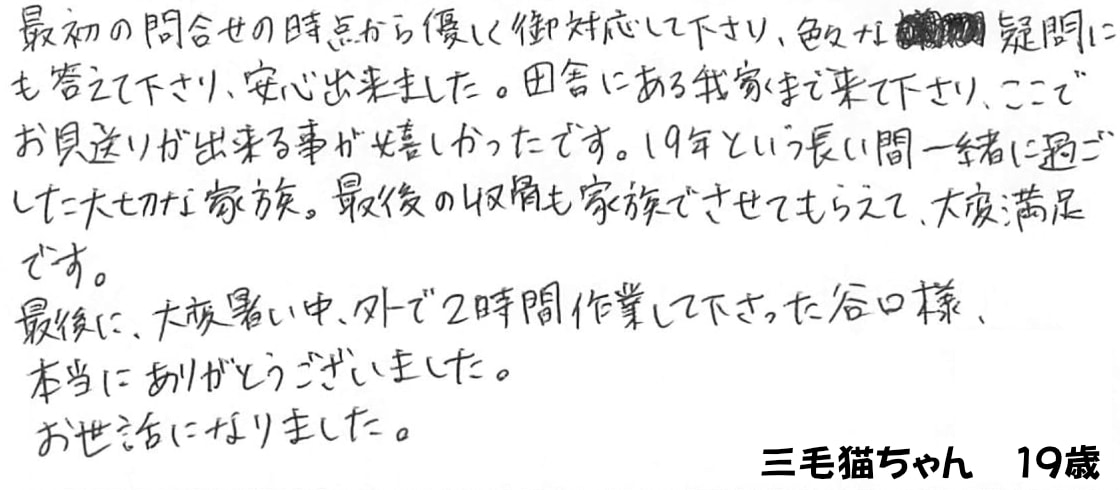 最初の問合せの時点から優しく御対応して下さり、色々な疑問に
も答えて下さり、安心出来ました。田舎にある我家まで来て下さり、ここで
お見送りが出来る事が嬉しかったです。19年という長い間一緒に過ご
した大切な家族。最後の収骨も家族でさせてもらえて、大変満足
です。
最後に、大変暑い中、外で2時間作業して下さった谷口様、
本当にありがとうございました。
お世話になりました。
三毛猫ちゃん　19歳